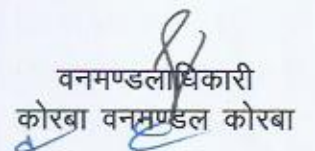 वनमण्डलाधिकारी
कोरबा वनमण्डल कोरबा